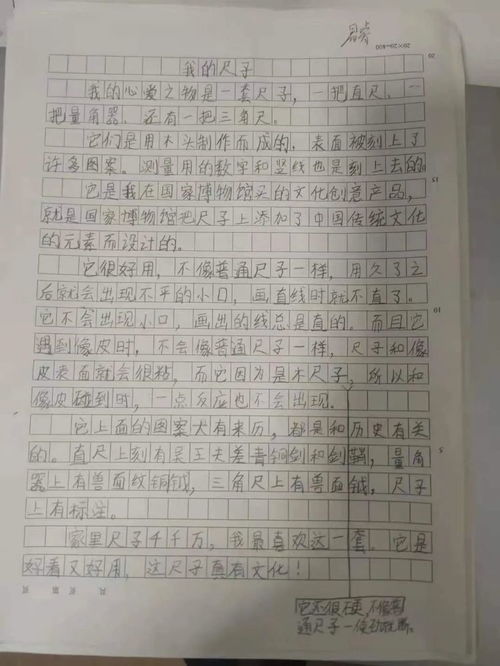 20×20=400
20
我的尺子
我的心爱之物是一套尺子，一把直尺、一
把量角器、还有一把三角尺。
它们是用木头制作而成的，表面被刻上了
许多图案。测量用的数字和竖线也是刻上去的。
15
它是我在国家博物馆买的文化创意产品，
就是国家博物馆把尺子上添加了中国传统文化
的元素而设计的。
它很好用，不像普通尺子一样，用久了之
后就会出现不平的小口，画直线时就不直了。
10
它不会出现小口，画出的线总是直的。而且它
遇到像皮时，不会像普通尺子一样，尺子和像
皮表面就会很粘，而它因为是木尺子，所以和
像皮碰到时，一点反应也不会出现。
它上面的图案大有来历，都是和历史有关
5
的。直尺上刻有吴王夫差青铜剑和剑鞘，量角
器上有兽面纹铜钺，三角尺上有兽面钺，尺子
上有标注。
家里尺子千千万，我最喜欢这一套。它是
好看又好用，这尺子真有文化！
页 第 页 共 页
它还很硬，不像普
通尺子一使劲就断。